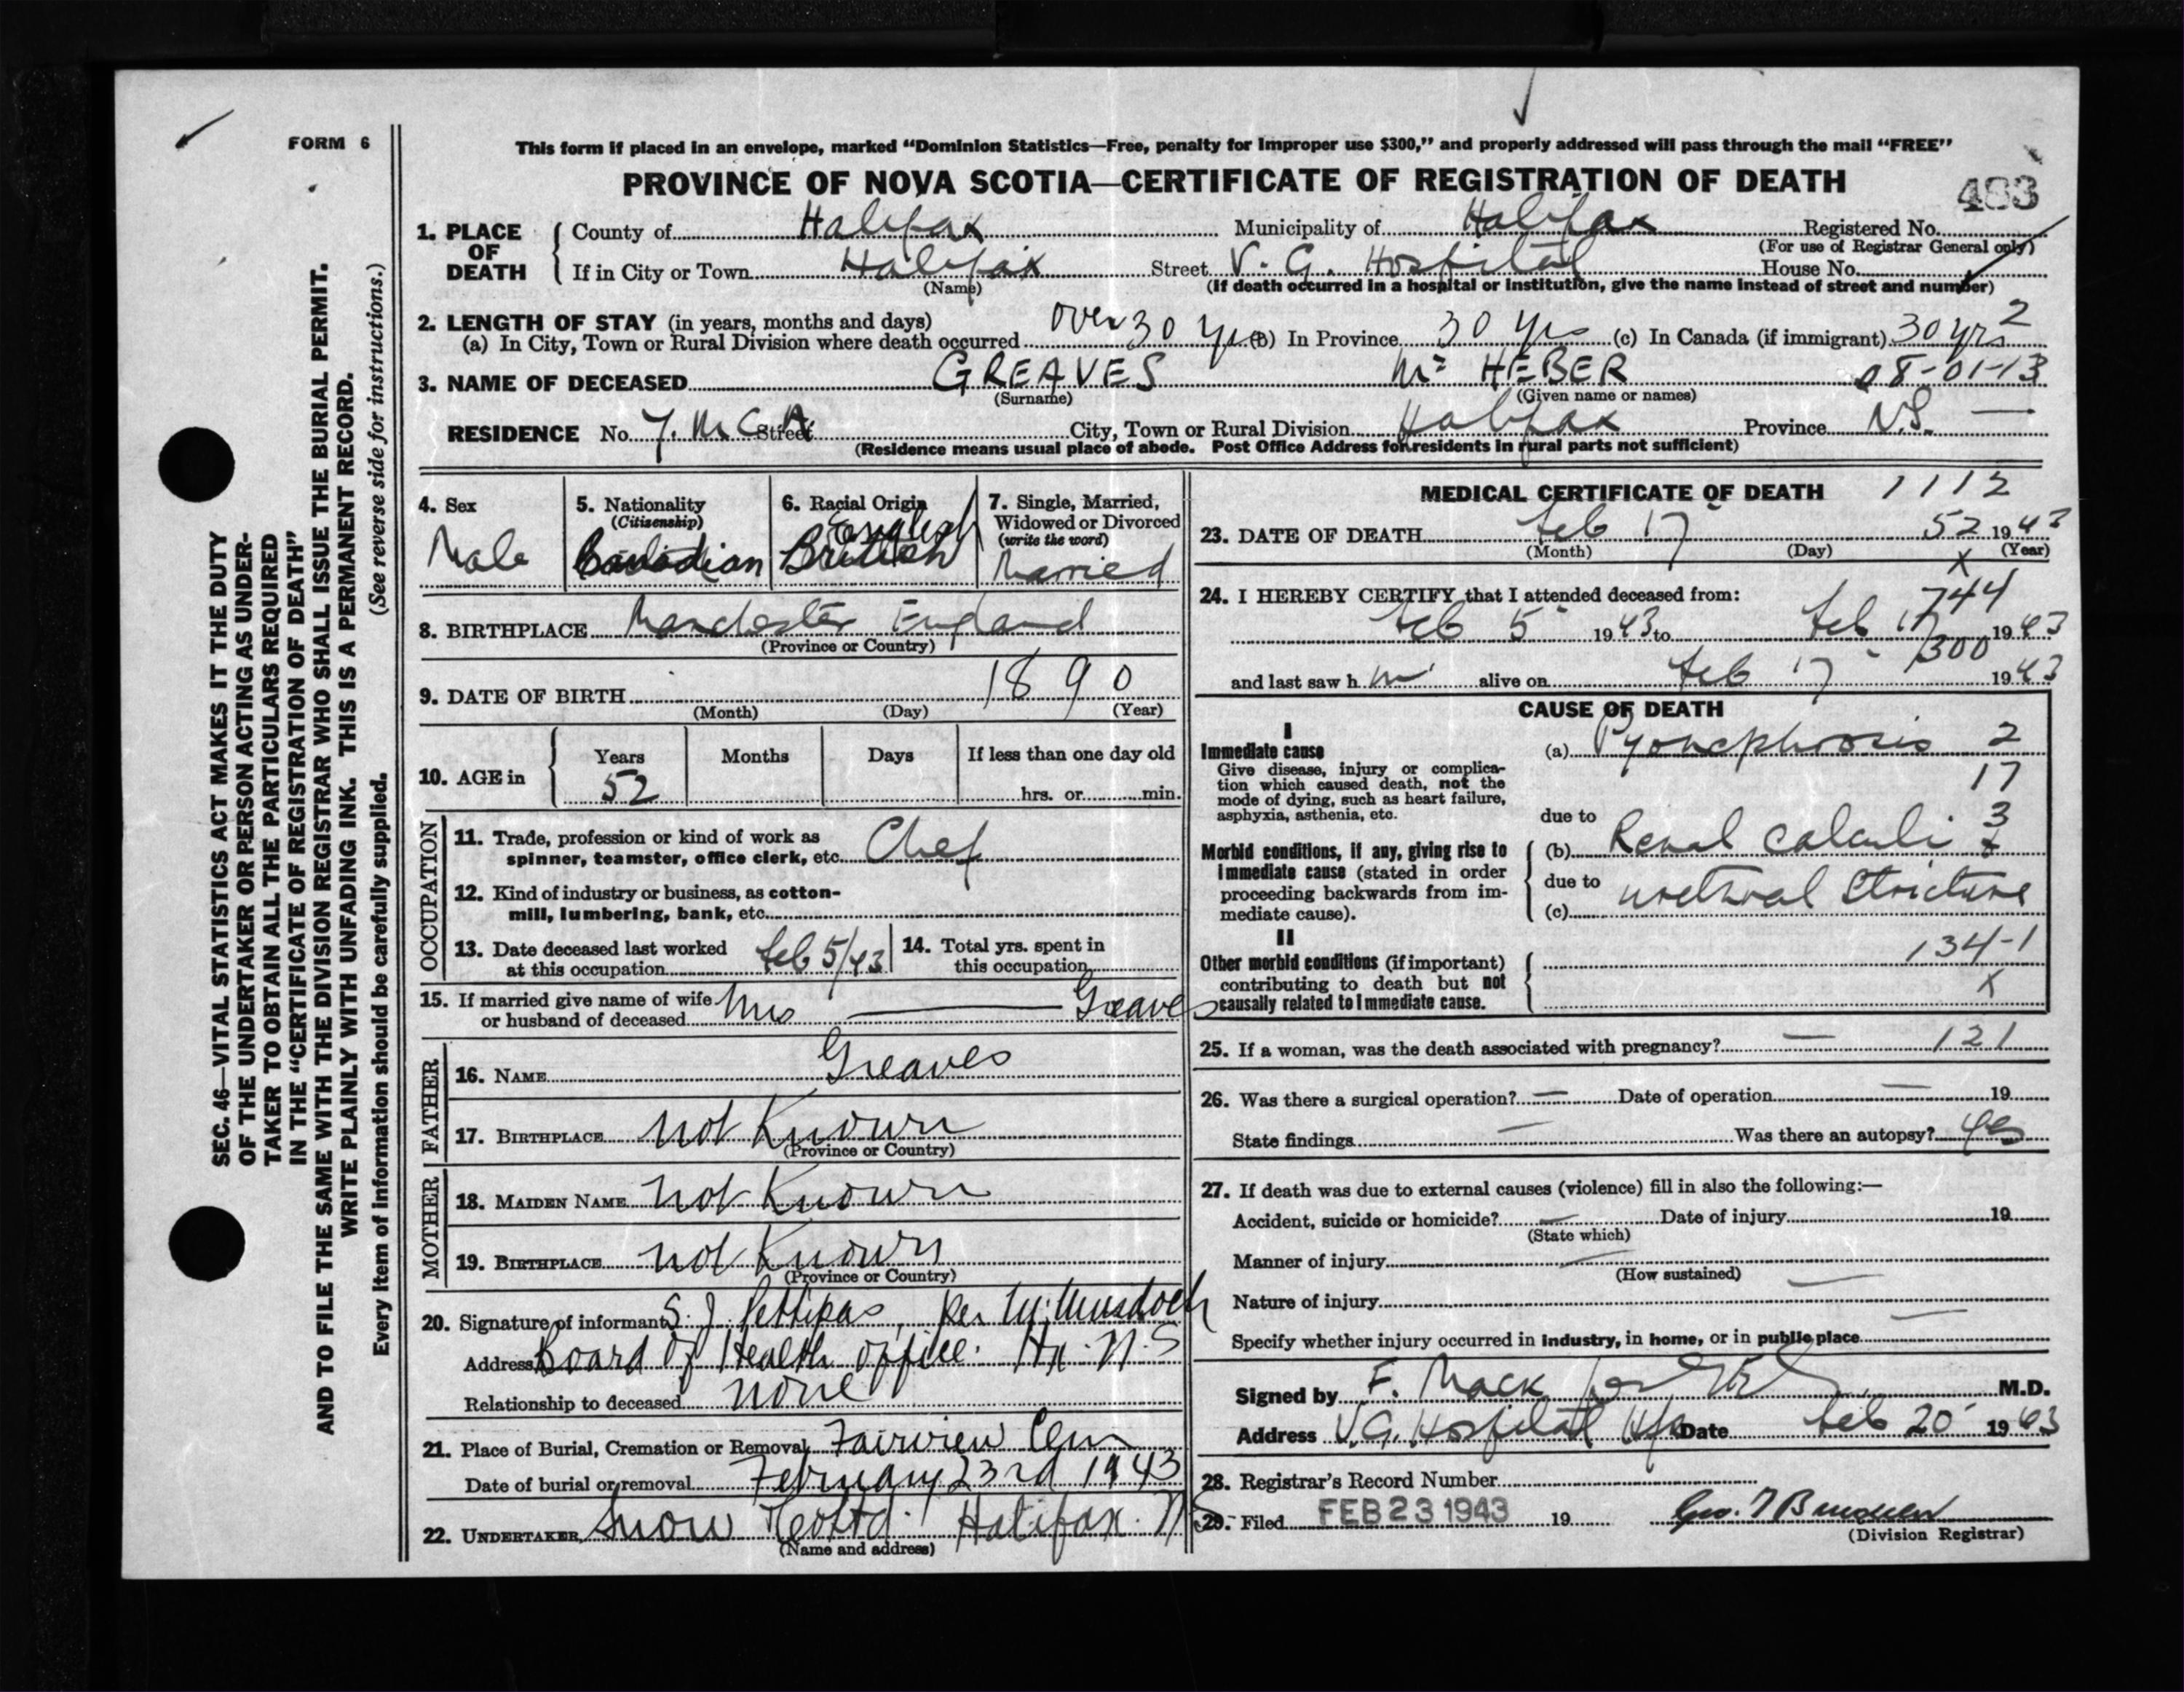 FORM 6
This form if placed in an envelope, marked “Dominion Statistics—Free, penalty for improper use $300,” and properly addressed will pass through the mail “FREE”
PROVINCE OF NOVA SCOTIA—CERTIFICATE OF REGISTRATION OF DEATH
483
1. PLACE OF DEATH
County of Halifax Municipality of Halifax Registered No.
(For use of Registrar General only)
If in City or Town Halifax Street V. G. Hospital House No.
(Name) (If death occurred in a hospital or institution, give the name instead of street and number)
2. LENGTH OF STAY (in years, months and days)
(a) In City, Town or Rural Division where death occurred over 30 yrs (b) In Province 30 yrs (c) In Canada (if immigrant) 30 yrs 2
3. NAME OF DECEASED GREAVES Mr HEBER 08-01-13
(Surname) (Given name or names)
RESIDENCE No. Y.M.C.A. Street City, Town or Rural Division Halifax Province N.S. —
(Residence means usual place of abode. Post Office Address for residents in rural parts not sufficient)
4. Sex
Male
5. Nationality
(Citizenship)
Canadian
6. Racial Origin
English
British
7. Single, Married, Widowed or Divorced
(write the word)
Married
8. BIRTHPLACE Manchester England
(Province or Country)
9. DATE OF BIRTH 1890
(Month) (Day) (Year)
10. AGE in Years Months Days If less than one day old
52 hrs. or min.
OCCUPATION
11. Trade, profession or kind of work as
spinner, teamster, office clerk, etc. Chef
12. Kind of industry or business, as cotton-
mill, lumbering, bank, etc.
13. Date deceased last worked
at this occupation Feb 5/43
14. Total yrs. spent in
this occupation
15. If married give name of wife
or husband of deceased Mrs — Greaves
FATHER
16. NAME Greaves
17. BIRTHPLACE not Known
(Province or Country)
MOTHER
18. MAIDEN NAME not Known
19. BIRTHPLACE not Known
(Province or Country)
20. Signature of informant S. J. Pettipas, per M. Murdoch
Address Board of Health office. Hx. N.S
Relationship to deceased none
21. Place of Burial, Cremation or Removal Fairview Cem
Date of burial or removal February 23rd 1943
22. UNDERTAKER Snow & Co Ltd. Halifax. N.S.
(Name and address)
MEDICAL CERTIFICATE OF DEATH 1112
23. DATE OF DEATH Feb 17 52 1943
(Month) (Day) (Year)
x
24. I HEREBY CERTIFY that I attended deceased from:
744
Feb 5 1943 to Feb 17 1943
1300
and last saw h im alive on Feb 17 1943
CAUSE OF DEATH
I
Immediate cause
Give disease, injury or complica-
tion which caused death, not the
mode of dying, such as heart failure,
asphyxia, asthenia, etc.
(a) Pyonephrosis 2
17
due to 3
Morbid conditions, if any, giving rise to
immediate cause (stated in order
proceeding backwards from im-
mediate cause).
(b) Renal calculi
due to
(c) urethral stricture
II
Other morbid conditions (if important)
contributing to death but not
causally related to immediate cause.
134-1
x
25. If a woman, was the death associated with pregnancy? — 121
26. Was there a surgical operation? — Date of operation — 19
State findings — Was there an autopsy? yes
27. If death was due to external causes (violence) fill in also the following:—
Accident, suicide or homicide? — Date of injury 19
(State which)
Manner of injury —
(How sustained)
Nature of injury —
Specify whether injury occurred in industry, in home, or in public place —
Signed by F. Mack M.D.
Address V.G. Hospital Hfx Date Feb 20 1943
28. Registrar's Record Number
29. Filed FEB 23 1943 19
(Division Registrar)
SEC. 46—VITAL STATISTICS ACT MAKES IT THE DUTY
OF THE UNDERTAKER OR PERSON ACTING AS UNDER-
TAKER TO OBTAIN ALL THE PARTICULARS REQUIRED
IN THE “CERTIFICATE OF REGISTRATION OF DEATH”
AND TO FILE THE SAME WITH THE DIVISION REGISTRAR WHO SHALL ISSUE THE BURIAL PERMIT.
WRITE PLAINLY WITH UNFADING INK. THIS IS A PERMANENT RECORD.
Every item of information should be carefully supplied. (See reverse side for instructions.)